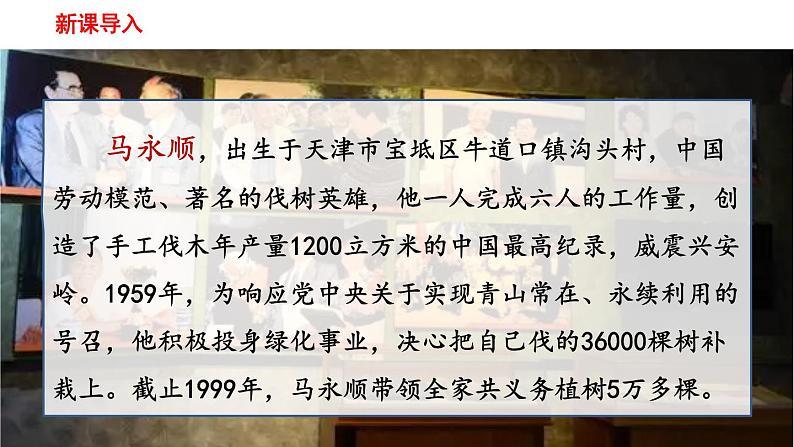 新课导入
马永顺，出生于天津市宝坻区牛道口镇沟头村，中国
劳动模范、著名的伐树英雄，他一人完成六人的工作量，创
造了手工伐木年产量1200立方米的中国最高纪录，威震兴安
岭。1959年，为响应党中央关于实现青山常在、永续利用的
号召，他积极投身绿化事业，决心把自己伐的36000棵树补
栽上。截止1999年，马永顺带领全家共义务植树5万多棵。